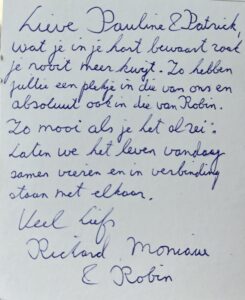 Lieve Pauline & Patrick,
wat je in je hart bewaart raak
je nooit meer kwijt. Zo hebben
jullie een plekje in die van ons en
absoluut ook in die van Robin.
Zo mooi als je het al zei:
Laten we het leven vandaag
samen vieren en in verbinding
staan met elkaar.
Veel liefs
Richard, Monique
& Robin